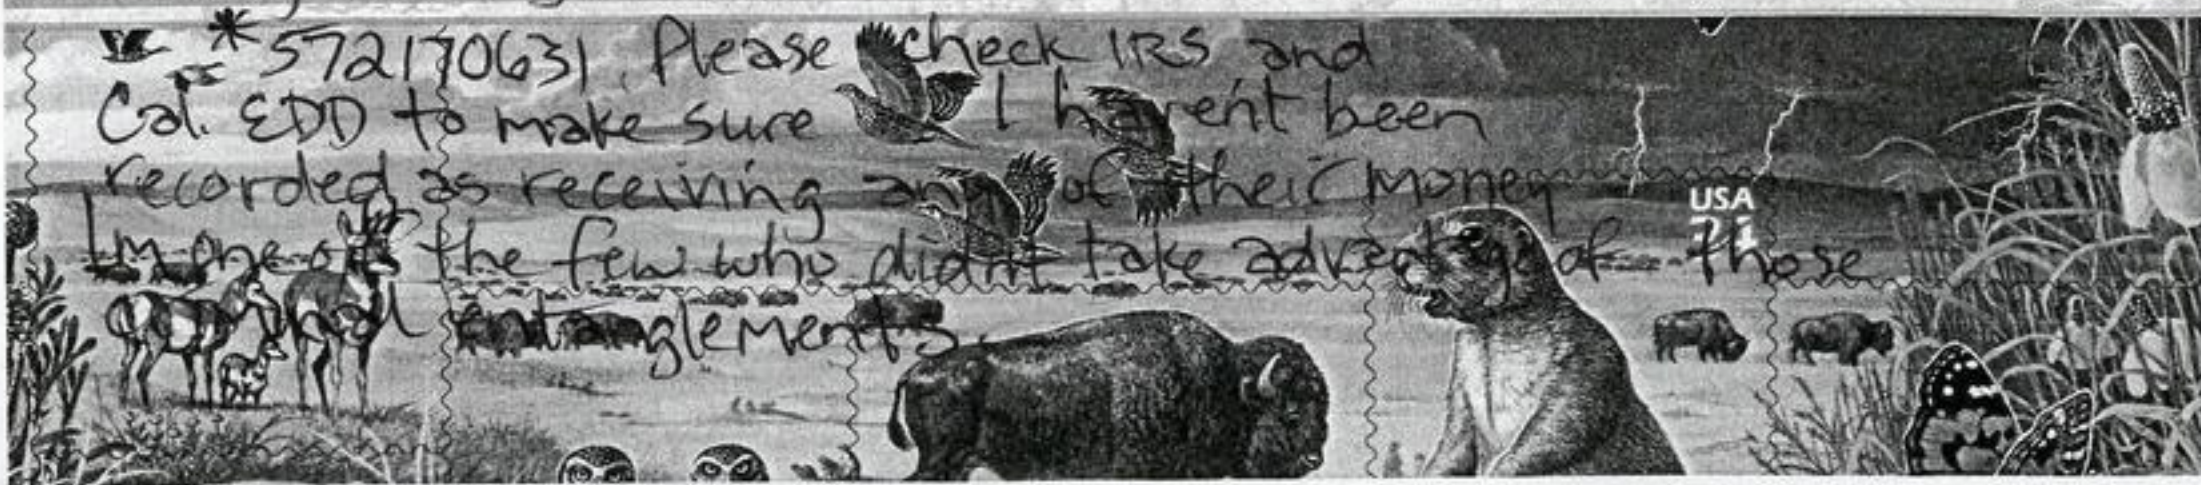 *572170631. Please check IRS and
Cal. EDD to make sure I haven't been
recorded as receiving any of their money
USA
I'm one of the few who didn't take advantage of those
entanglements.